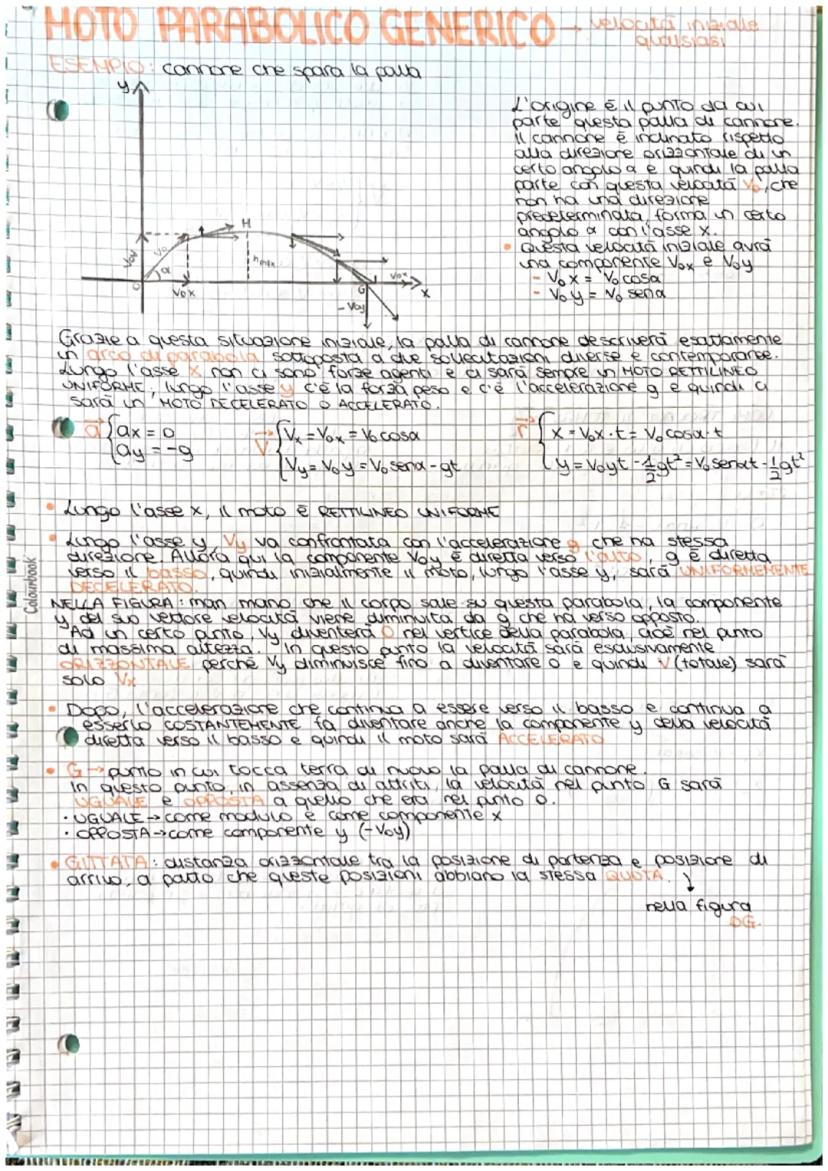 MOTO PARABOLICO GENERICO → velocità iniziale
qualsiasi
ESEMPIO: cannone che spara la palla
y
L'origine è il punto da cui
parte questa palla di cannone.
Il cannone è inclinato rispetto
alla direzione orizzontale di un
certo angolo α e quindi la palla
parte con questa velocità V₀, che
non ha una direzione
predeterminata, forma un certo
angolo α con l'asse x.
• Questa velocità iniziale avrà
una componente V₀x e V₀y
- V₀x = V₀ cosα
- V₀y = V₀ senα
H
V₀y
V₀
α
hmax
O
V₀x
G
V₀x
x
-V₀y
Grazie a questa situazione iniziale, la palla di cannone descriverà esattamente
un arco di parabola sottoposta a due sollecitazioni diverse e contemporanee.
Lungo l'asse x non ci sono forze agenti e ci sarà sempre un MOTO RETTILINEO
UNIFORME, lungo l'asse y c'è la forza peso e c'è l'accelerazione g e quindi ci
sarà un MOTO DECELERATO O ACCELERATO.
a { ax = 0
ay = -g
V { Vx = V₀x = V₀ cosα
Vy = V₀y = V₀ senα - gt
r { x = V₀x · t = V₀ cosα · t
y = V₀yt - 1/2 gt² = V₀ senαt - 1/2 gt²
• Lungo l'asse x, il moto è RETTILINEO UNIFORME
• Lungo l'asse y Vy va confrontata con l'accelerazione g che ha stessa
direzione. Allora qui la componente V₀y è diretta verso l'alto, g è diretta
verso il basso, quindi inizialmente il moto, lungo l'asse y, sarà UNIFORMEMENTE
DECELERATO.
NELLA FIGURA: man mano che il corpo sale su questa parabola, la componente
y del suo vettore velocità viene diminuita da g che ha verso opposto.
Ad un certo punto, Vy diventerà 0 nel vertice della parabola, cioè nel punto
di massima altezza. In questo punto la velocità sarà esclusivamente
ORIZZONTALE perché Vy diminuisce fino a diventare 0 e quindi V (totale) sarà
solo Vx
• Dopo, l'accelerazione che continua a essere verso il basso e continua a
esserlo COSTANTEMENTE fa diventare anche la componente y della velocità
diretta verso il basso e quindi il moto sarà ACCELERATO
• G → punto in cui tocca terra di nuovo la palla di cannone.
In questo punto, in assenza di attriti, la velocità nel punto G sarà
UGUALE e OPPOSTA a quello che era nel punto O.
· UGUALE → come modulo e come componente x
· OPPOSTA → come componente y (-V₀y)
• GITTATA: distanza orizzontale tra la posizione di partenza e posizione di
arrivo, a patto che queste posizioni abbiano la stessa QUOTA.
↓
nella figura
OG.
Colourbook